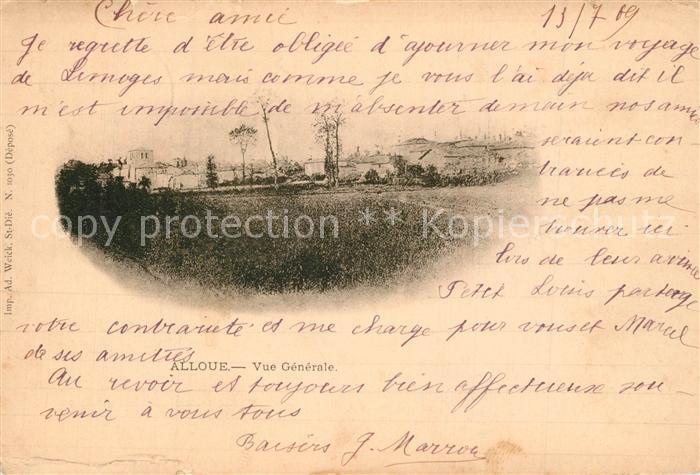 Chère amie 13/7 09
Je regrette d'être obligée d'ajourner mon voyage
de Limoges mais comme je vous l'ai déja dit il
m'est impossible de m'absenter demain nos amies
seraient con-
trariés de
ne pas me
trouver ici
lors de leur arrivée
Petit Louis partage
votre contrarieté et me charge pour vous et Marcel
de ses amitiés
ALLOUE.— Vue Générale.
Au revoir et toujours bien affectueux sou-
venir à vous tous
Baisers J. Marrou
Imp. Ad. Weick, St-Dié. N. 1030 (Déposé)
copy protection ** Kopierschutz